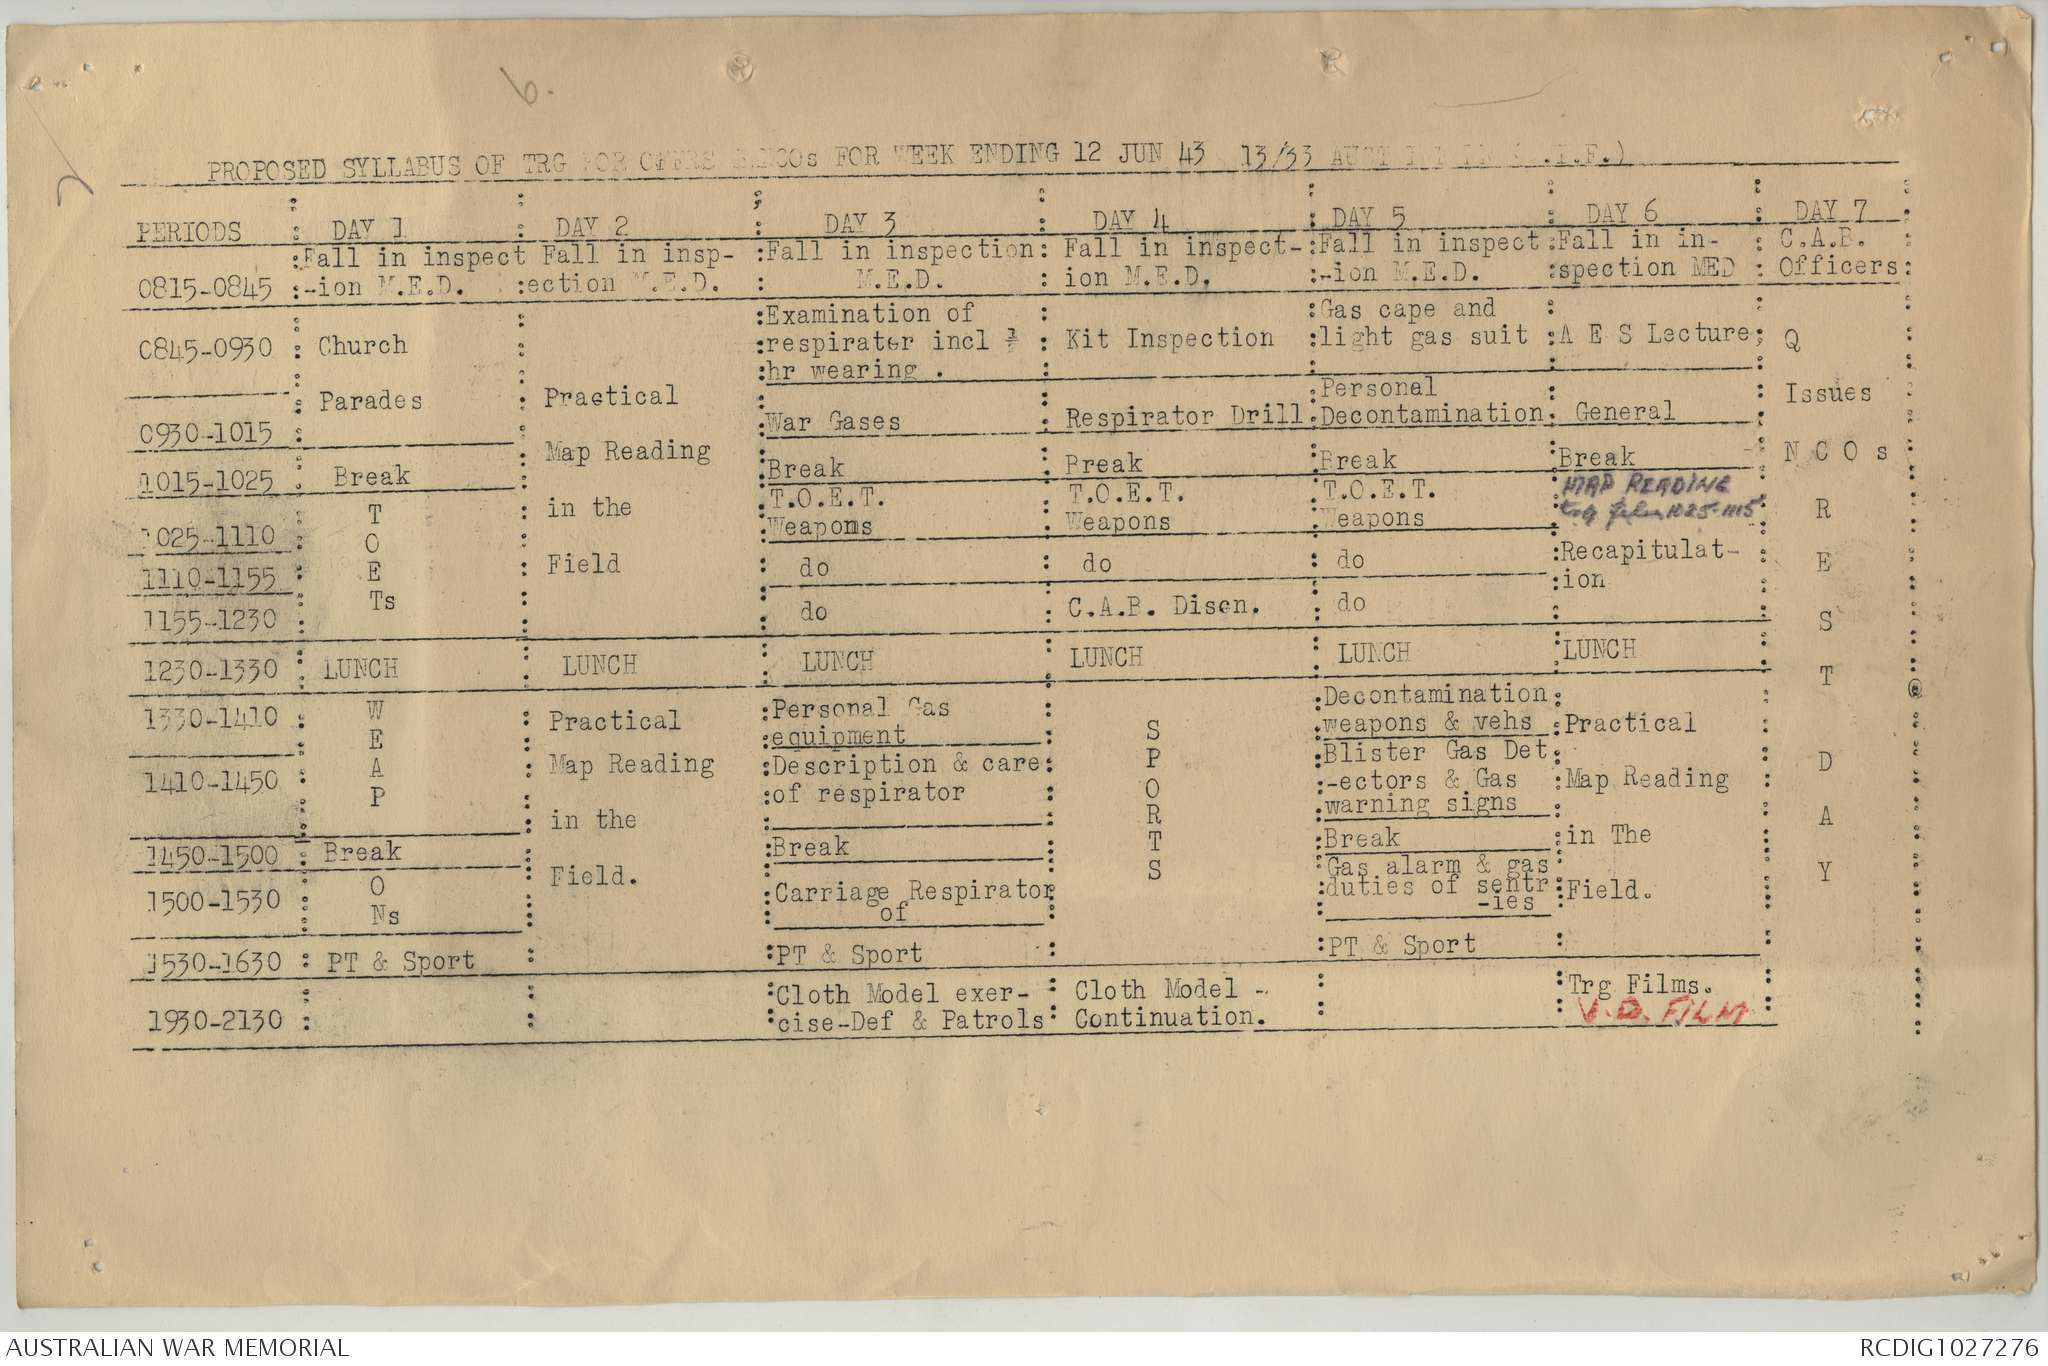 6.
PROPOSED SYLLABUS OF TRG FOR OFFRS & NCOs FOR WEEK ENDING 12 JUN 43 13/33 AUST
PERIODS : DAY 1 : DAY 2 : DAY 3 : DAY 4 : DAY 5 : DAY 6 : DAY 7
0815-0845
Fall in inspect
-ion M.E.D.
Fall in insp-
ection M.E.D.
Fall in inspection
M.E.D.
Fall in inspect-
ion M.E.D.
Fall in inspect
-ion M.E.D.
Fall in in-
spection MED
C.A.B.
Officers
0845-0930
Church
Examination of
respirater incl ½
hr wearing .
Kit Inspection
Gas cape and
light gas suit
A E S Lecture
Q
Issues
0930-1015
Parades
Practical
War Gases
Respirator Drill
Personal
Decontamination
General
1015-1025
Break
Map Reading
Break
Break
Break
Break
N C O s
1025-1110
T
O
E
Ts
in the
T.O.E.T.
Weapons
T.O.E.T.
Weapons
T.O.E.T.
Weapons
MAP READING
trg film 1025-1115
R
1110-1155
Field
do
do
do
Recapitulat-
ion
E
1155-1230
do
C.A.B. Discn.
do
S
1230-1330
LUNCH
LUNCH
LUNCH
LUNCH
LUNCH
LUNCH
T
1330-1410
W
E
A
P
Practical
Personal Gas
equipment
S
P
O
R
T
S
Decontamination
weapons & vehs
Practical
1410-1450
Map Reading
in the
Description & care
of respirator
Blister Gas Det
-ectors & Gas
warning signs
Map Reading
D
1450-1500
Break
Break
Break
in The
A
1500-1530
O
Ns
Field.
Carriage Respirator
of
Gas alarm & gas
duties of sentr
-ies
Field.
Y
1530-1630
PT & Sport
PT & Sport
PT & Sport
1930-2130
Cloth Model exer-
cise-Def & Patrols
Cloth Model -
Continuation.
Trg Films.
V.D. FILM
AUSTRALIAN WAR MEMORIAL
RCDIG1027276